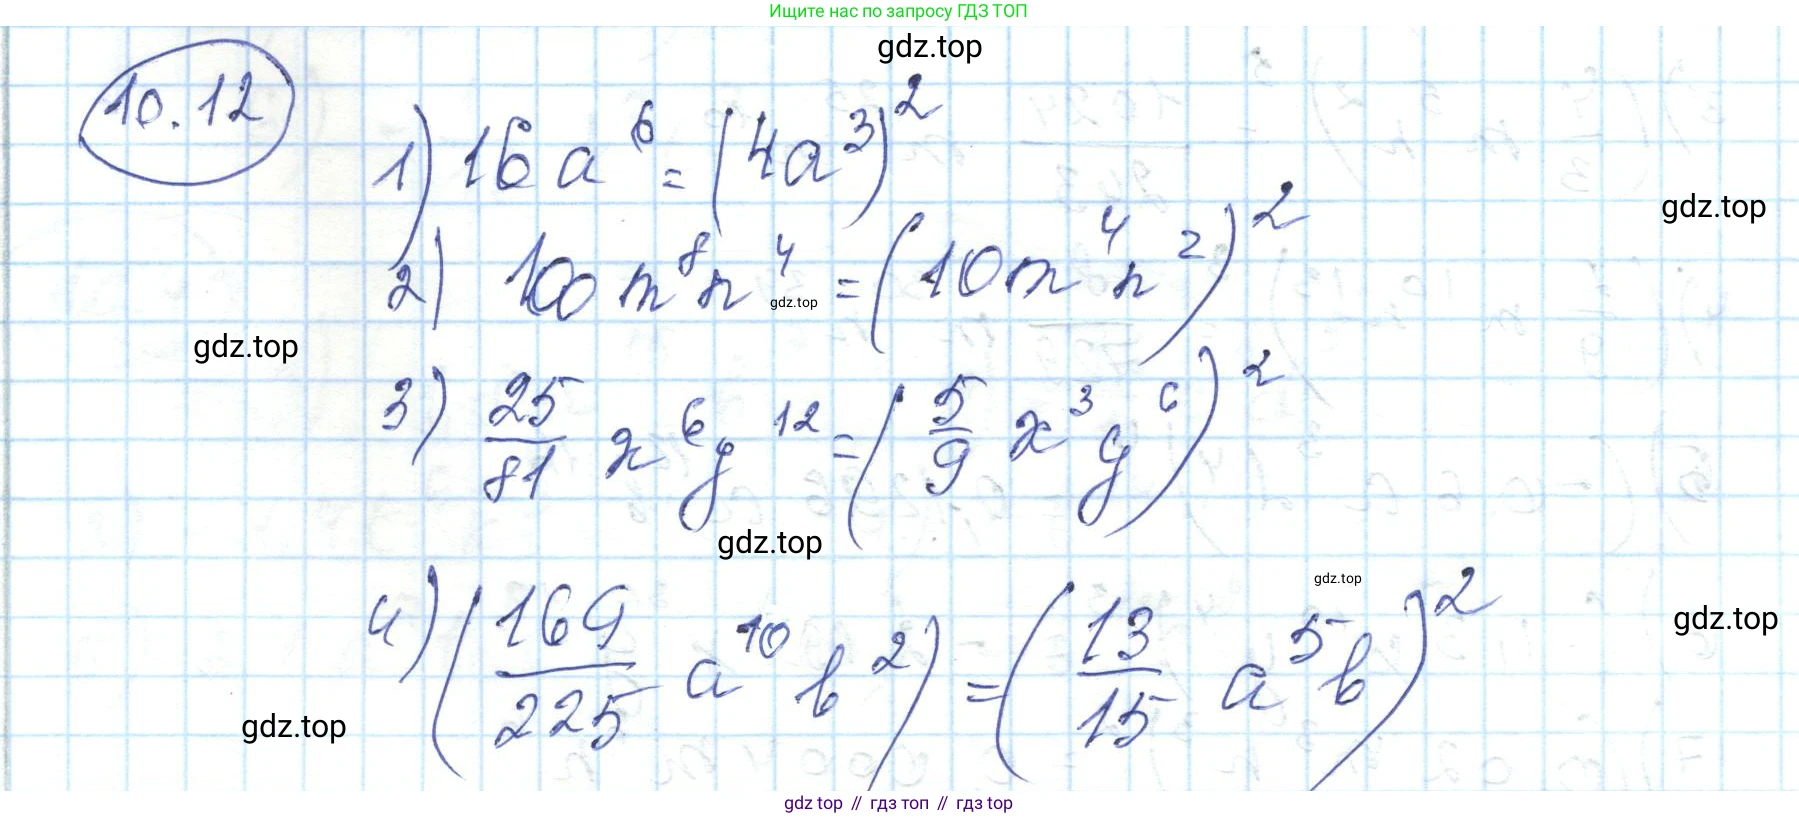 Ищите нас по запросу ГДЗ ТОП
gdz.top
10.12
1) 16a⁶ = (4a³)²
gdz.top
2) 100m⁸n⁴ = (10m⁴n²)²
gdz.top
gdz.top
3) 25/81 x⁶y¹² = (5/9 x³y⁶)²
gdz.top
gdz.top
4) (169/225 a¹⁰b²) = (13/15 a⁵b)²
gdz.top
gdz.top
gdz top // гдз топ // гдз top